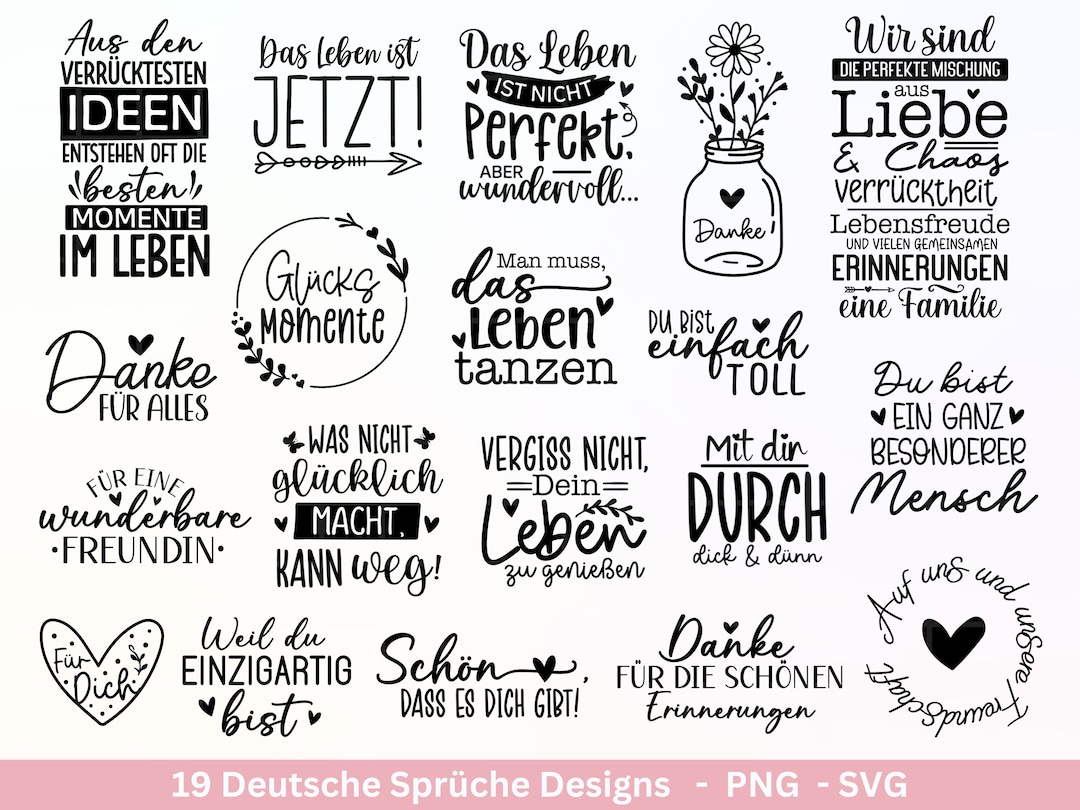 Aus den
VERRÜCKTESTEN
IDEEN
ENTSTEHEN OFT DIE
besten
MOMENTE
IM LEBEN
Das Leben ist
JETZT!
Das Leben
IST NICHT
Perfekt,
ABER
wundervoll...
Danke!
Wir sind
DIE PERFEKTE MISCHUNG
aus
Liebe
& Chaos
verrücktheit
Lebensfreude
UND VIELEN GEMEINSAMEN
ERINNERUNGEN
eine Familie
Glücks
Momente
Man muss,
das
Leben
tanzen
DU BIST
einfach
TOLL
Danke
FÜR ALLES
Du bist
EIN GANZ
BESONDERER
Mensch
FÜR EINE
wunderbare
• FREUNDIN •
WAS NICHT
glücklich
MACHT,
KANN weg!
VERGISS NICHT,
Dein
Leben
zu genießen
Mit dir
DURCH
dick & dünn
Für
Dich
Weil du
EINZIGARTIG
bist
Schön,
DASS ES DICH GIBT!
Danke
FÜR DIE SCHÖNEN
Erinnerungen
Auf uns und unsere Freundschaft
19 Deutsche Sprüche Designs - PNG - SVG